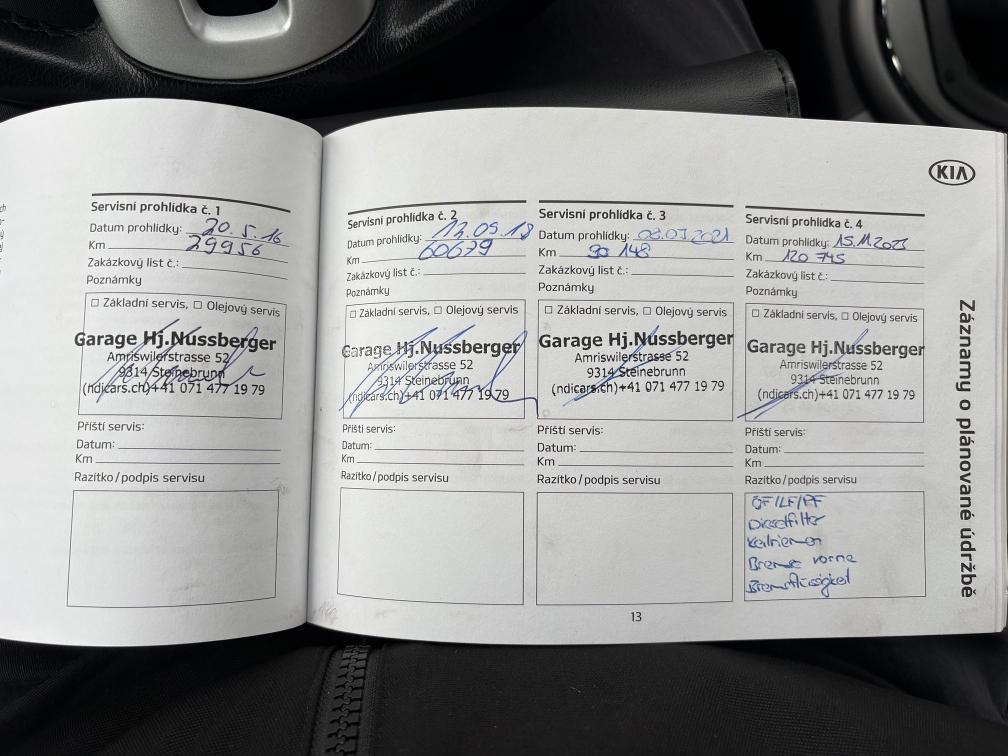 KIA
Servisní prohlídka č. 1
Datum prohlídky: 20.5.16
Km 29956
Zakázkový list č.:
Poznámky
☐ Základní servis, ☐ Olejový servis
Garage Hj.Nussberger
Amriswilerstrasse 52
9314 Steinebrunn
(ndicars.ch)+41 071 477 19 79
Příští servis:
Datum:
Km
Razítko/podpis servisu
Servisní prohlídka č. 2
Datum prohlídky: 13.09.18
Km 60679
Zakázkový list č.:
Poznámky
☐ Základní servis, ☐ Olejový servis
Garage Hj.Nussberger
Amriswilerstrasse 52
9314 Steinebrunn
(ndicars.ch)+41 071 477 19 79
Příští servis:
Datum:
Km
Razítko/podpis servisu
Servisní prohlídka č. 3
Datum prohlídky: 2021
Km 90 148
Zakázkový list č.:
Poznámky
☐ Základní servis, ☐ Olejový servis
Garage Hj.Nussberger
Amriswilerstrasse 52
9314 Steinebrunn
(ndicars.ch)+41 071 477 19 79
Příští servis:
Datum:
Km
Razítko/podpis servisu
Servisní prohlídka č. 4
Datum prohlídky: 15.11.2023
Km 120 745
Zakázkový list č.:
Poznámky
☐ Základní servis, ☐ Olejový servis
Garage Hj.Nussberger
Amriswilerstrasse 52
9314 Steinebrunn
(ndicars.ch)+41 071 477 19 79
Příští servis:
Datum:
Km
Razítko/podpis servisu
ÖF/LF/PF
Dieselfilter
Keilriemen
Bremse vorne
Bremsflüssigkeit
Záznamy o plánované údržbě
13